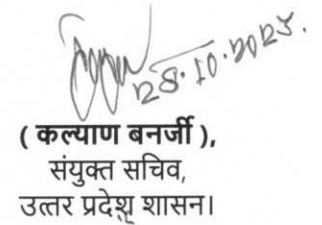 28.10.2025.
( कल्याण बनर्जी ),
संयुक्त सचिव,
उत्तर प्रदेश शासन।